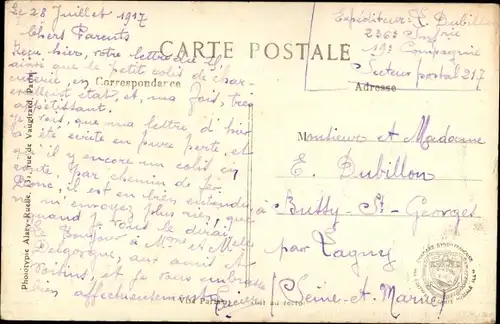 Le 28 Juillet 1917
Chers Parents
Reçu hier, votre lettre du 24
ainsi que le petit colis de char-
cuterie, en
excellent état, et, ma foi, très
appétissant.
Je vois, que ma lettre, d'hier
a été écrite en pure perte et
qu'il y encore un colis en
route par chemin de fer.
Donc, il est en bien entendu
m'envoyez plus rien, que
quand je vous le dirai.
Le Bonjour à Mons et Melle
Delgorgue, aux amis et
voisins, et je vous embrasse
bien affectueusement
CARTE POSTALE
Correspondance
Adresse
Expéditeur: E. Dubillon
236e Infrie
19e Compagnie
Secteur postal 217
Monsieur et Madame
E. Dubillon
à Bussy-St-Georges
par Lagny
(Seine-et-Marne)
Phototypie Alary-Ruelle, rue de Vaugirard, Paris
Visé Paris au recto